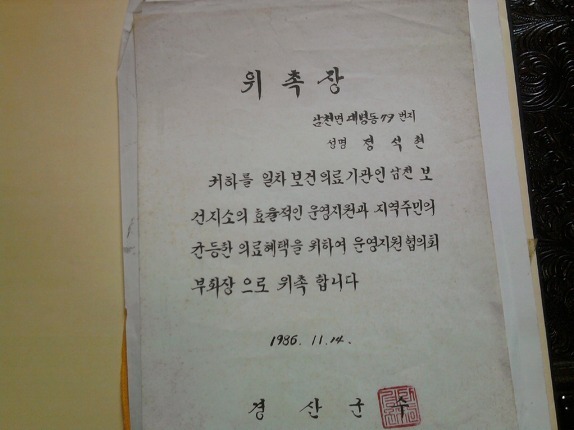 위 촉 장
남천면 대명동 79 번지
성명 정 석 천
귀하를 일차 보건 의료 기관인 남천 보
건지소의 효율적인 운영지원과 지역주민의
균등한 의료혜택을 위하여 운영지원협의회
부회장 으로 위촉 합니다
1986. 11. 14.
경 산 군 수